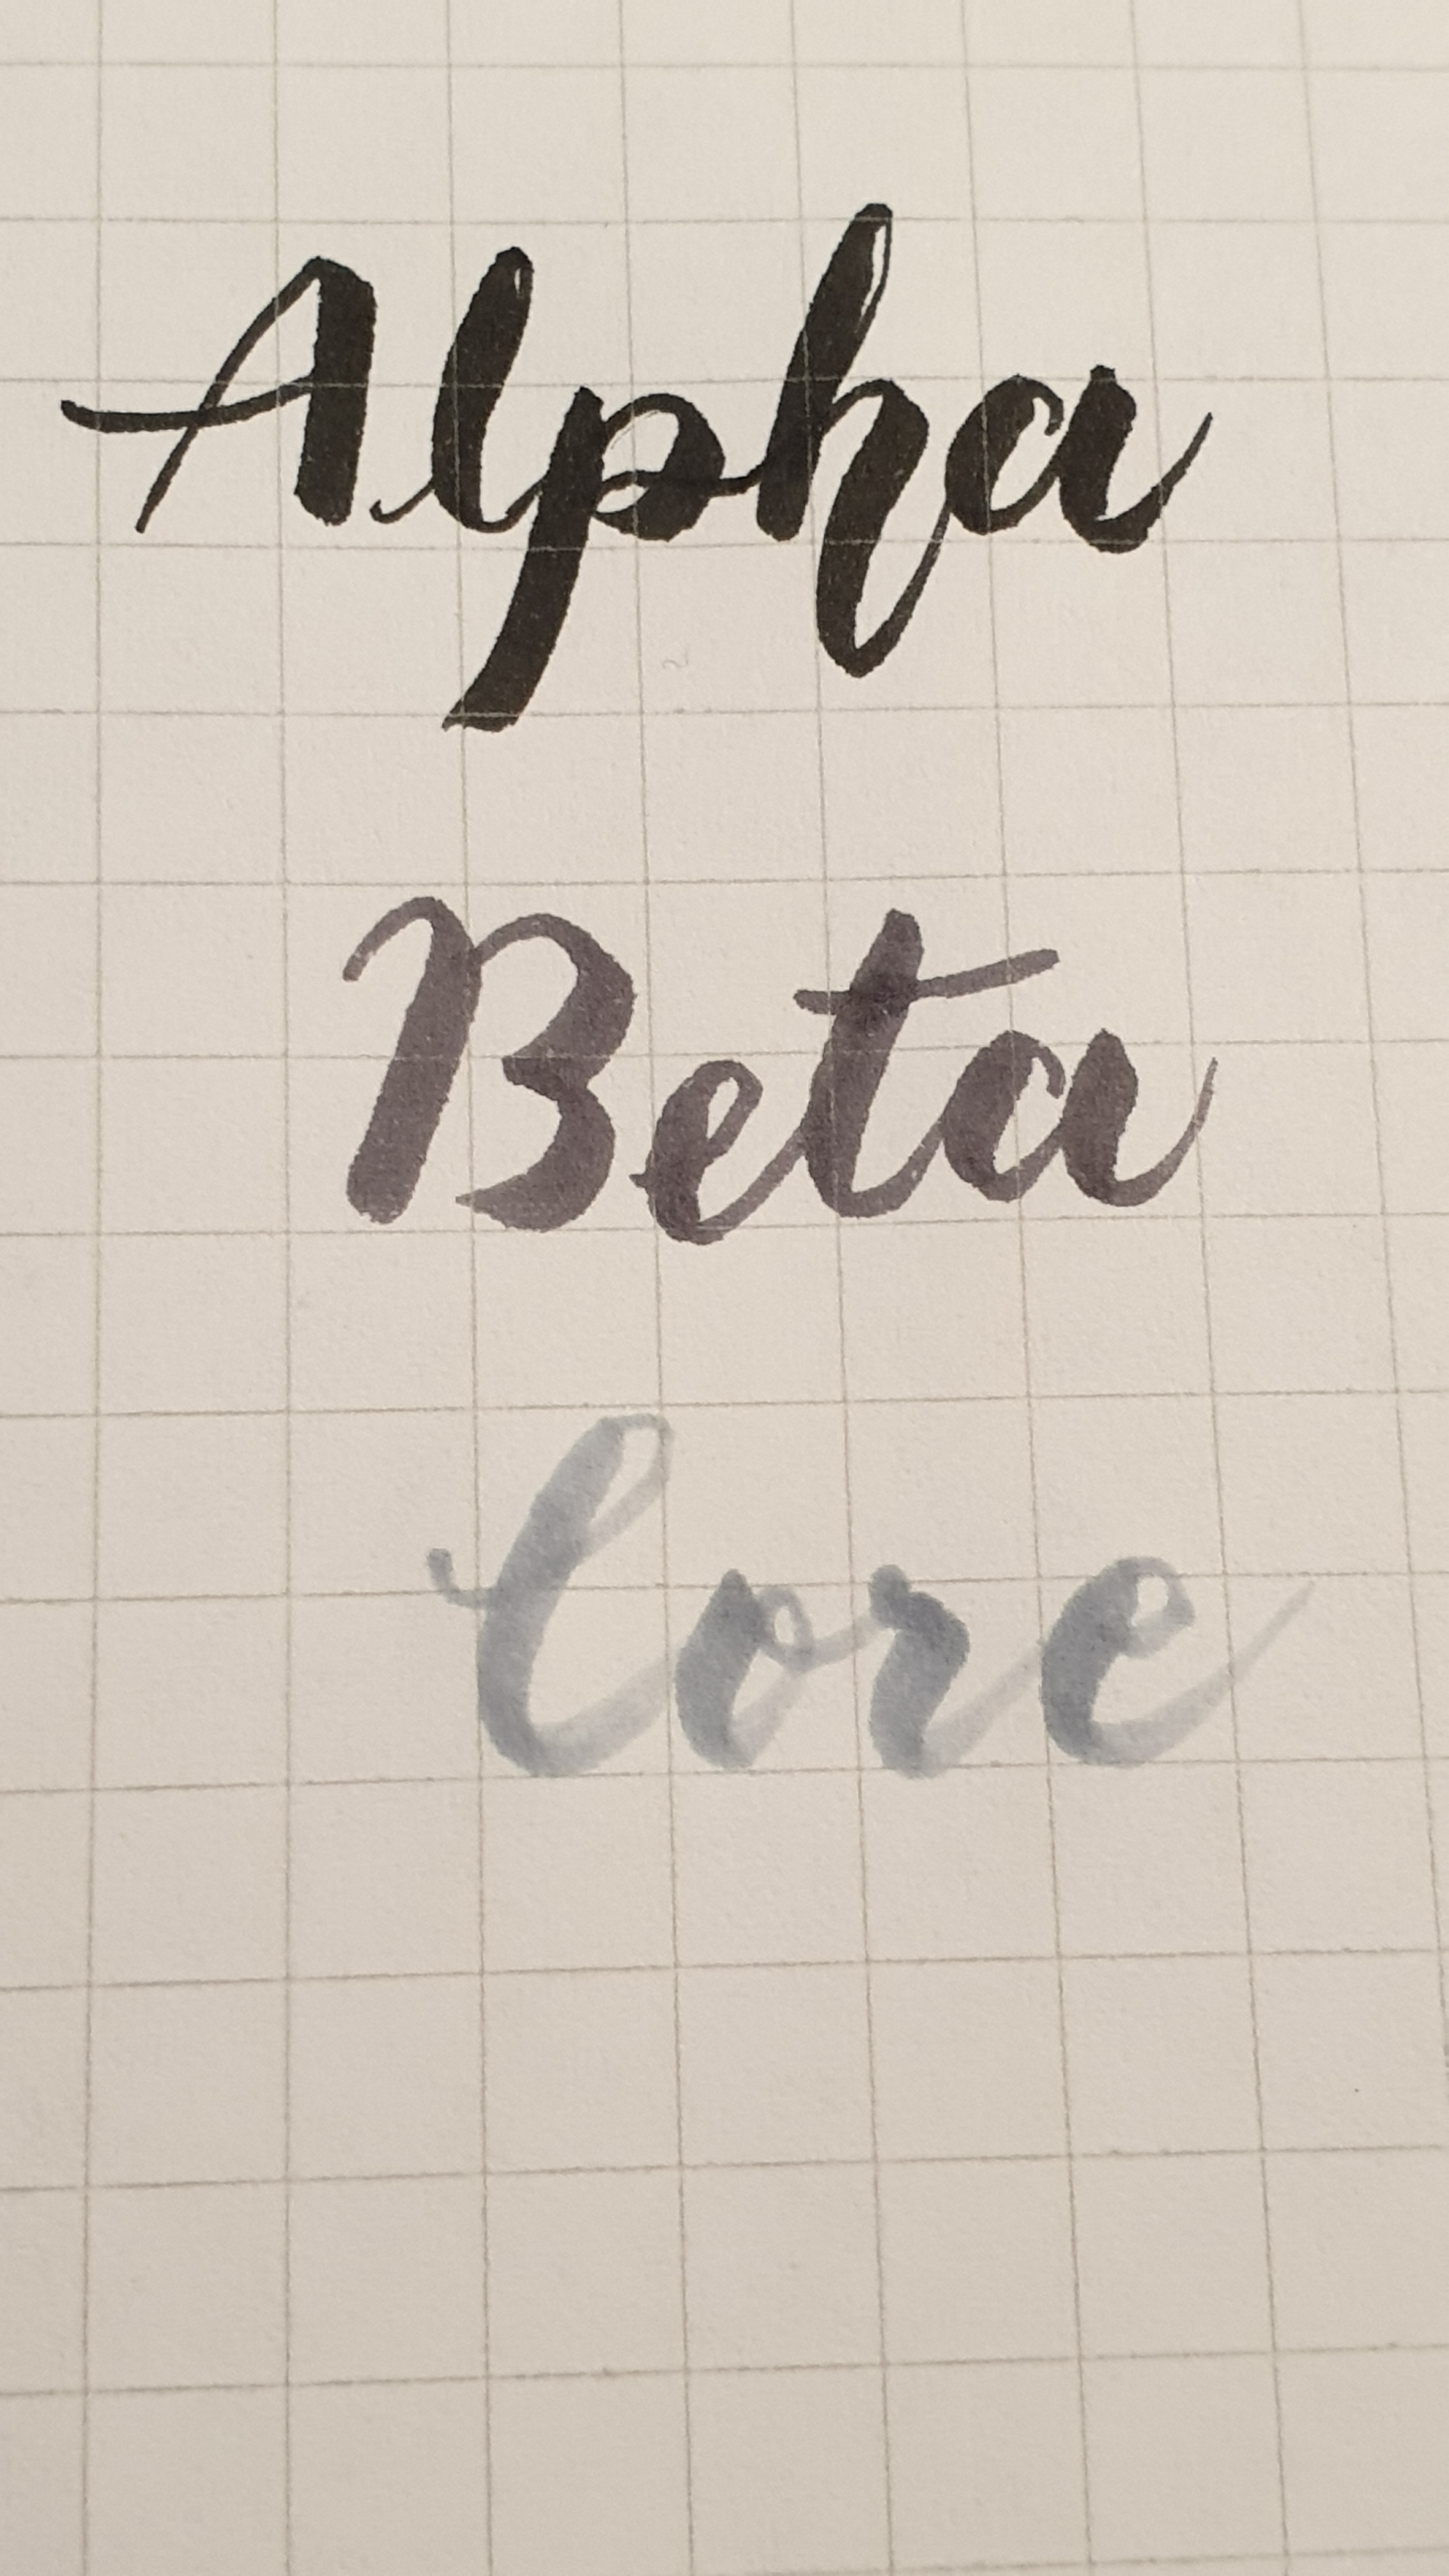 Alpha
Beta
Core